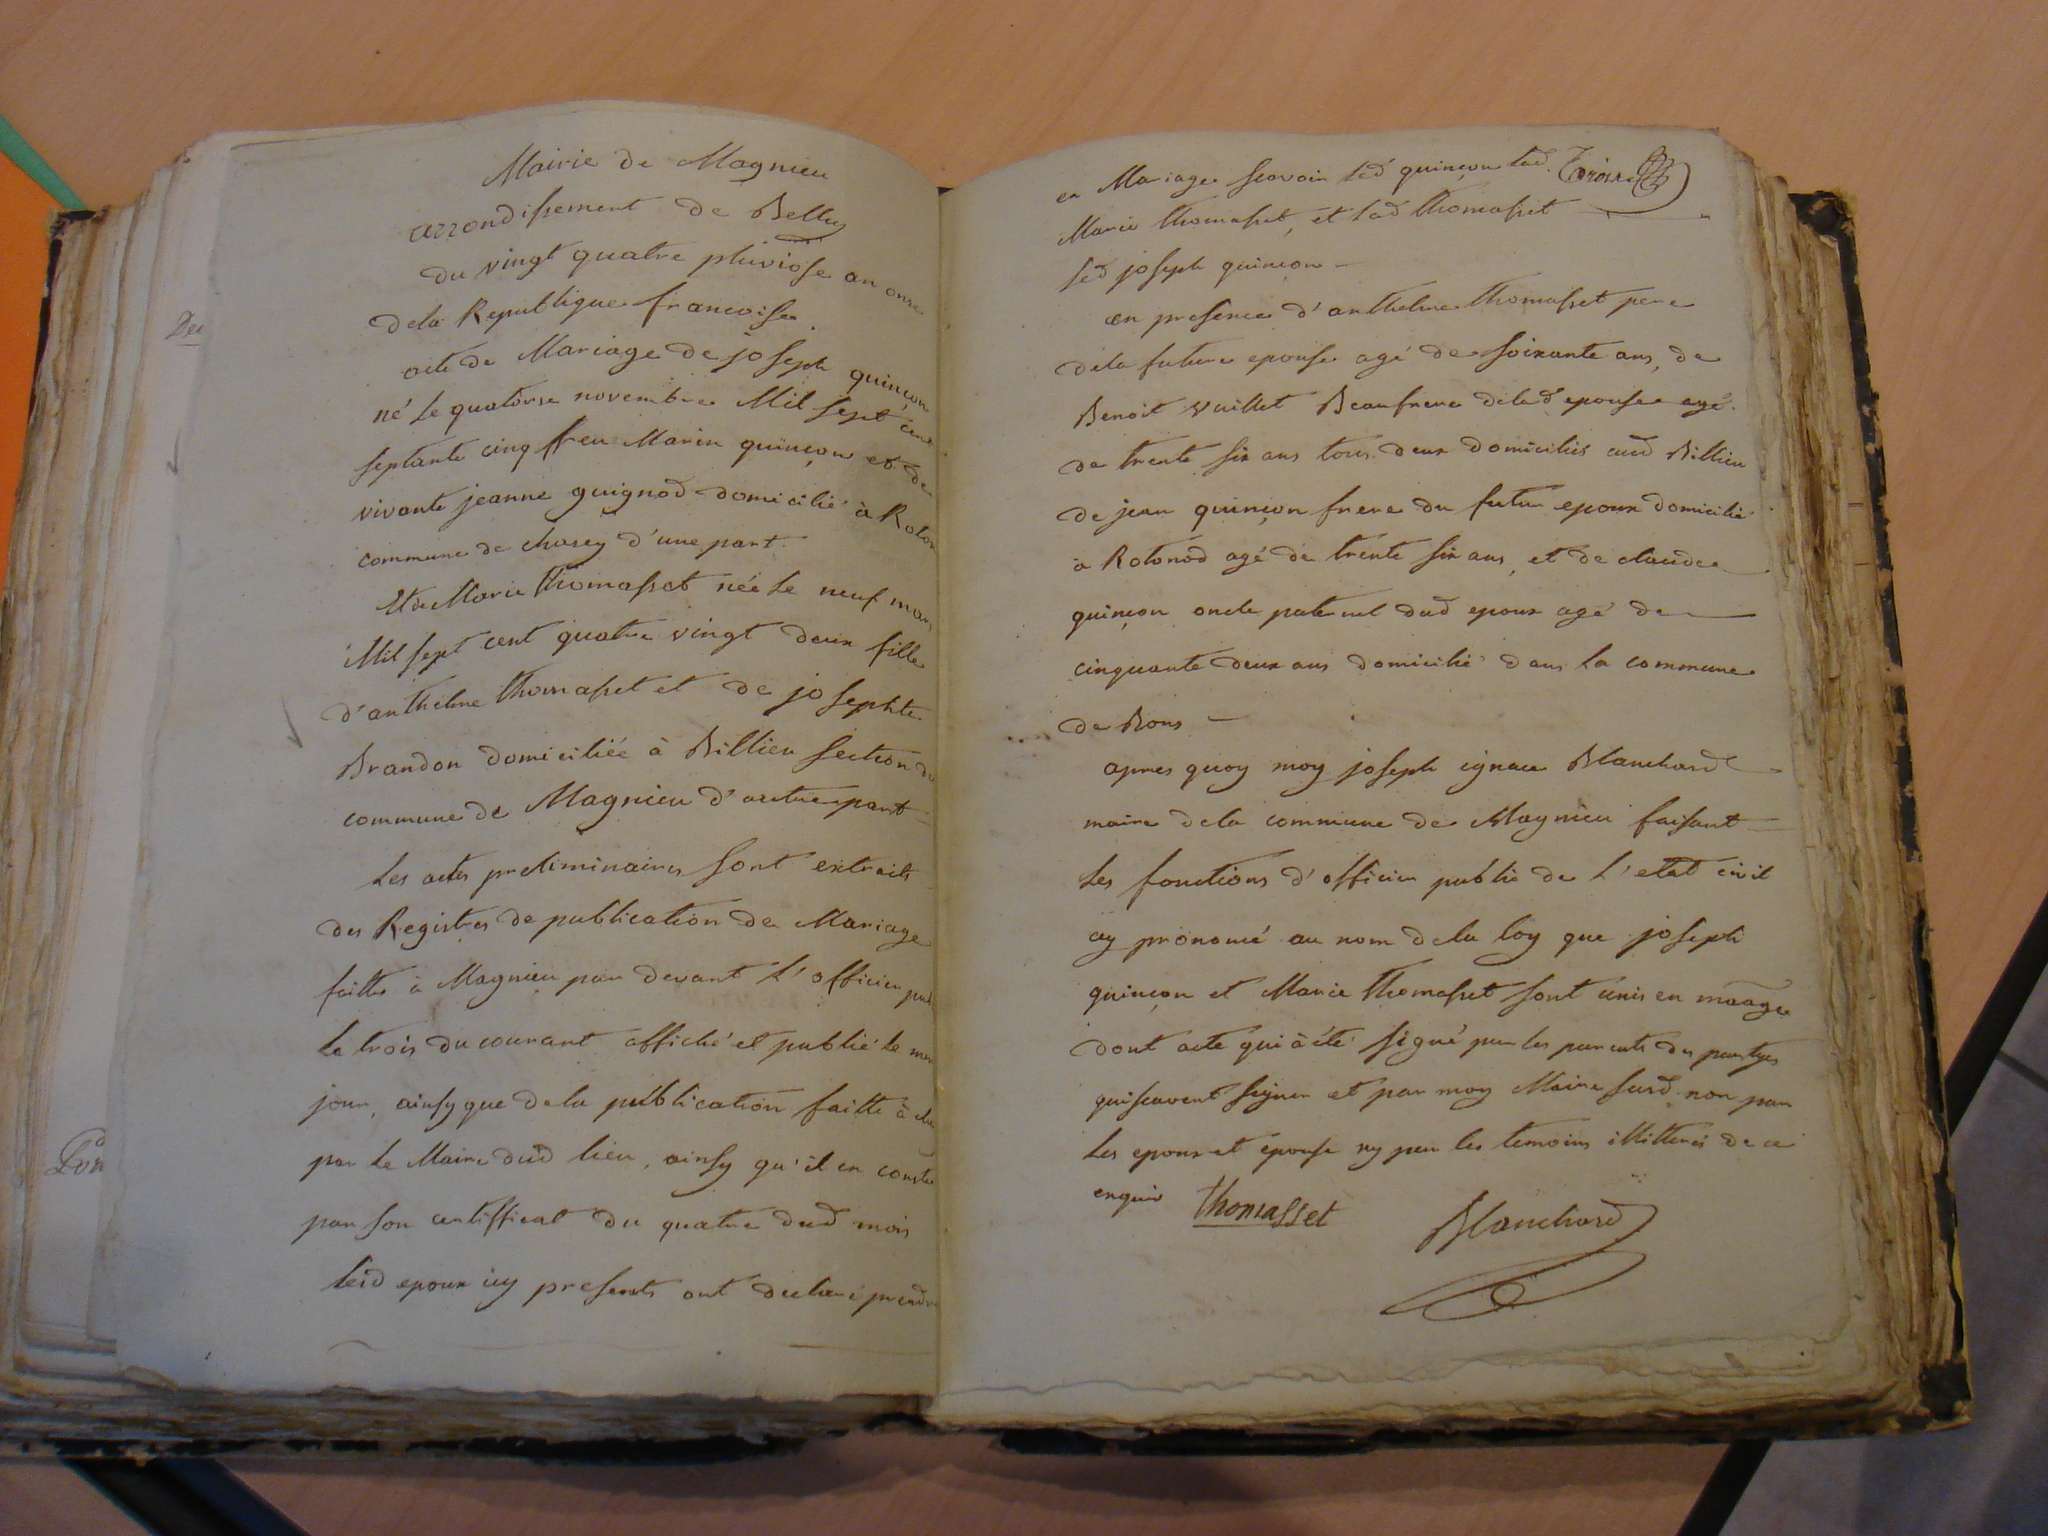 Mairie de Magnieu
arrondissement de Belley
du vingt quatre pluviose an onze
dela Republique francoise
acte de Mariage de joseph quinçon
né le quatorse novembre Mil sept cent
septante cinq feu Marin quinçon et de
vivante jeanne guignod domicilié à Roton
commune de chasey d'une part.
Et de Marie thomasset née le neuf mars
Mil sept cent quatre vingt deux fille
d'anthelme thomasset et de josephte
Brandon domiciliée à Billieu section du
commune de Magnieu d'autre part
Les actes preliminaires sont extraits
des Registres de publication de Mariage
faittes à Magnieu par devant l'officier pub
le trois du courant affiché et publié le mem
jour, ainsy que dela publication faitte à cha
par le Maire dud lieu, ainsy qu'il en conste
par son certifficat du quatre dud mois
lesd epoux icy presents ont declaré prendre
Dei
Don
en Mariage scavoir led quinçon lad.
Marie thomasset, et lad thomasset
led joseph quinçon
en presence d'anthelme thomasset pere
dela future epouse agé de soixante ans, de
Benoit vuillet Beaufrere delad epouse agé
de trente six ans tous deux domiciliés aud Billieu
de jean quinçon frere du futur epoux domicilié
à Rotonod agé de trente six ans, et de claude
quinçon oncle paternel dud epoux agé de
cinquante deux ans domicilié dans la commune
de Bons
apres quoy moy joseph ignace Blanchard
maire dela commune de Magnieu faisant
les fonctions d'officier public de l'etat civil
ay prononcé au nom dela loy que joseph
quinçon et Marie thomasset sont unis en maage
dont acte qui à été signé par les parents des partyes
qui scavent signer et par moy Maire susd. non par
les epoux et epouse ny par les temoins illitterés de ce
enquis thomasset Blanchard